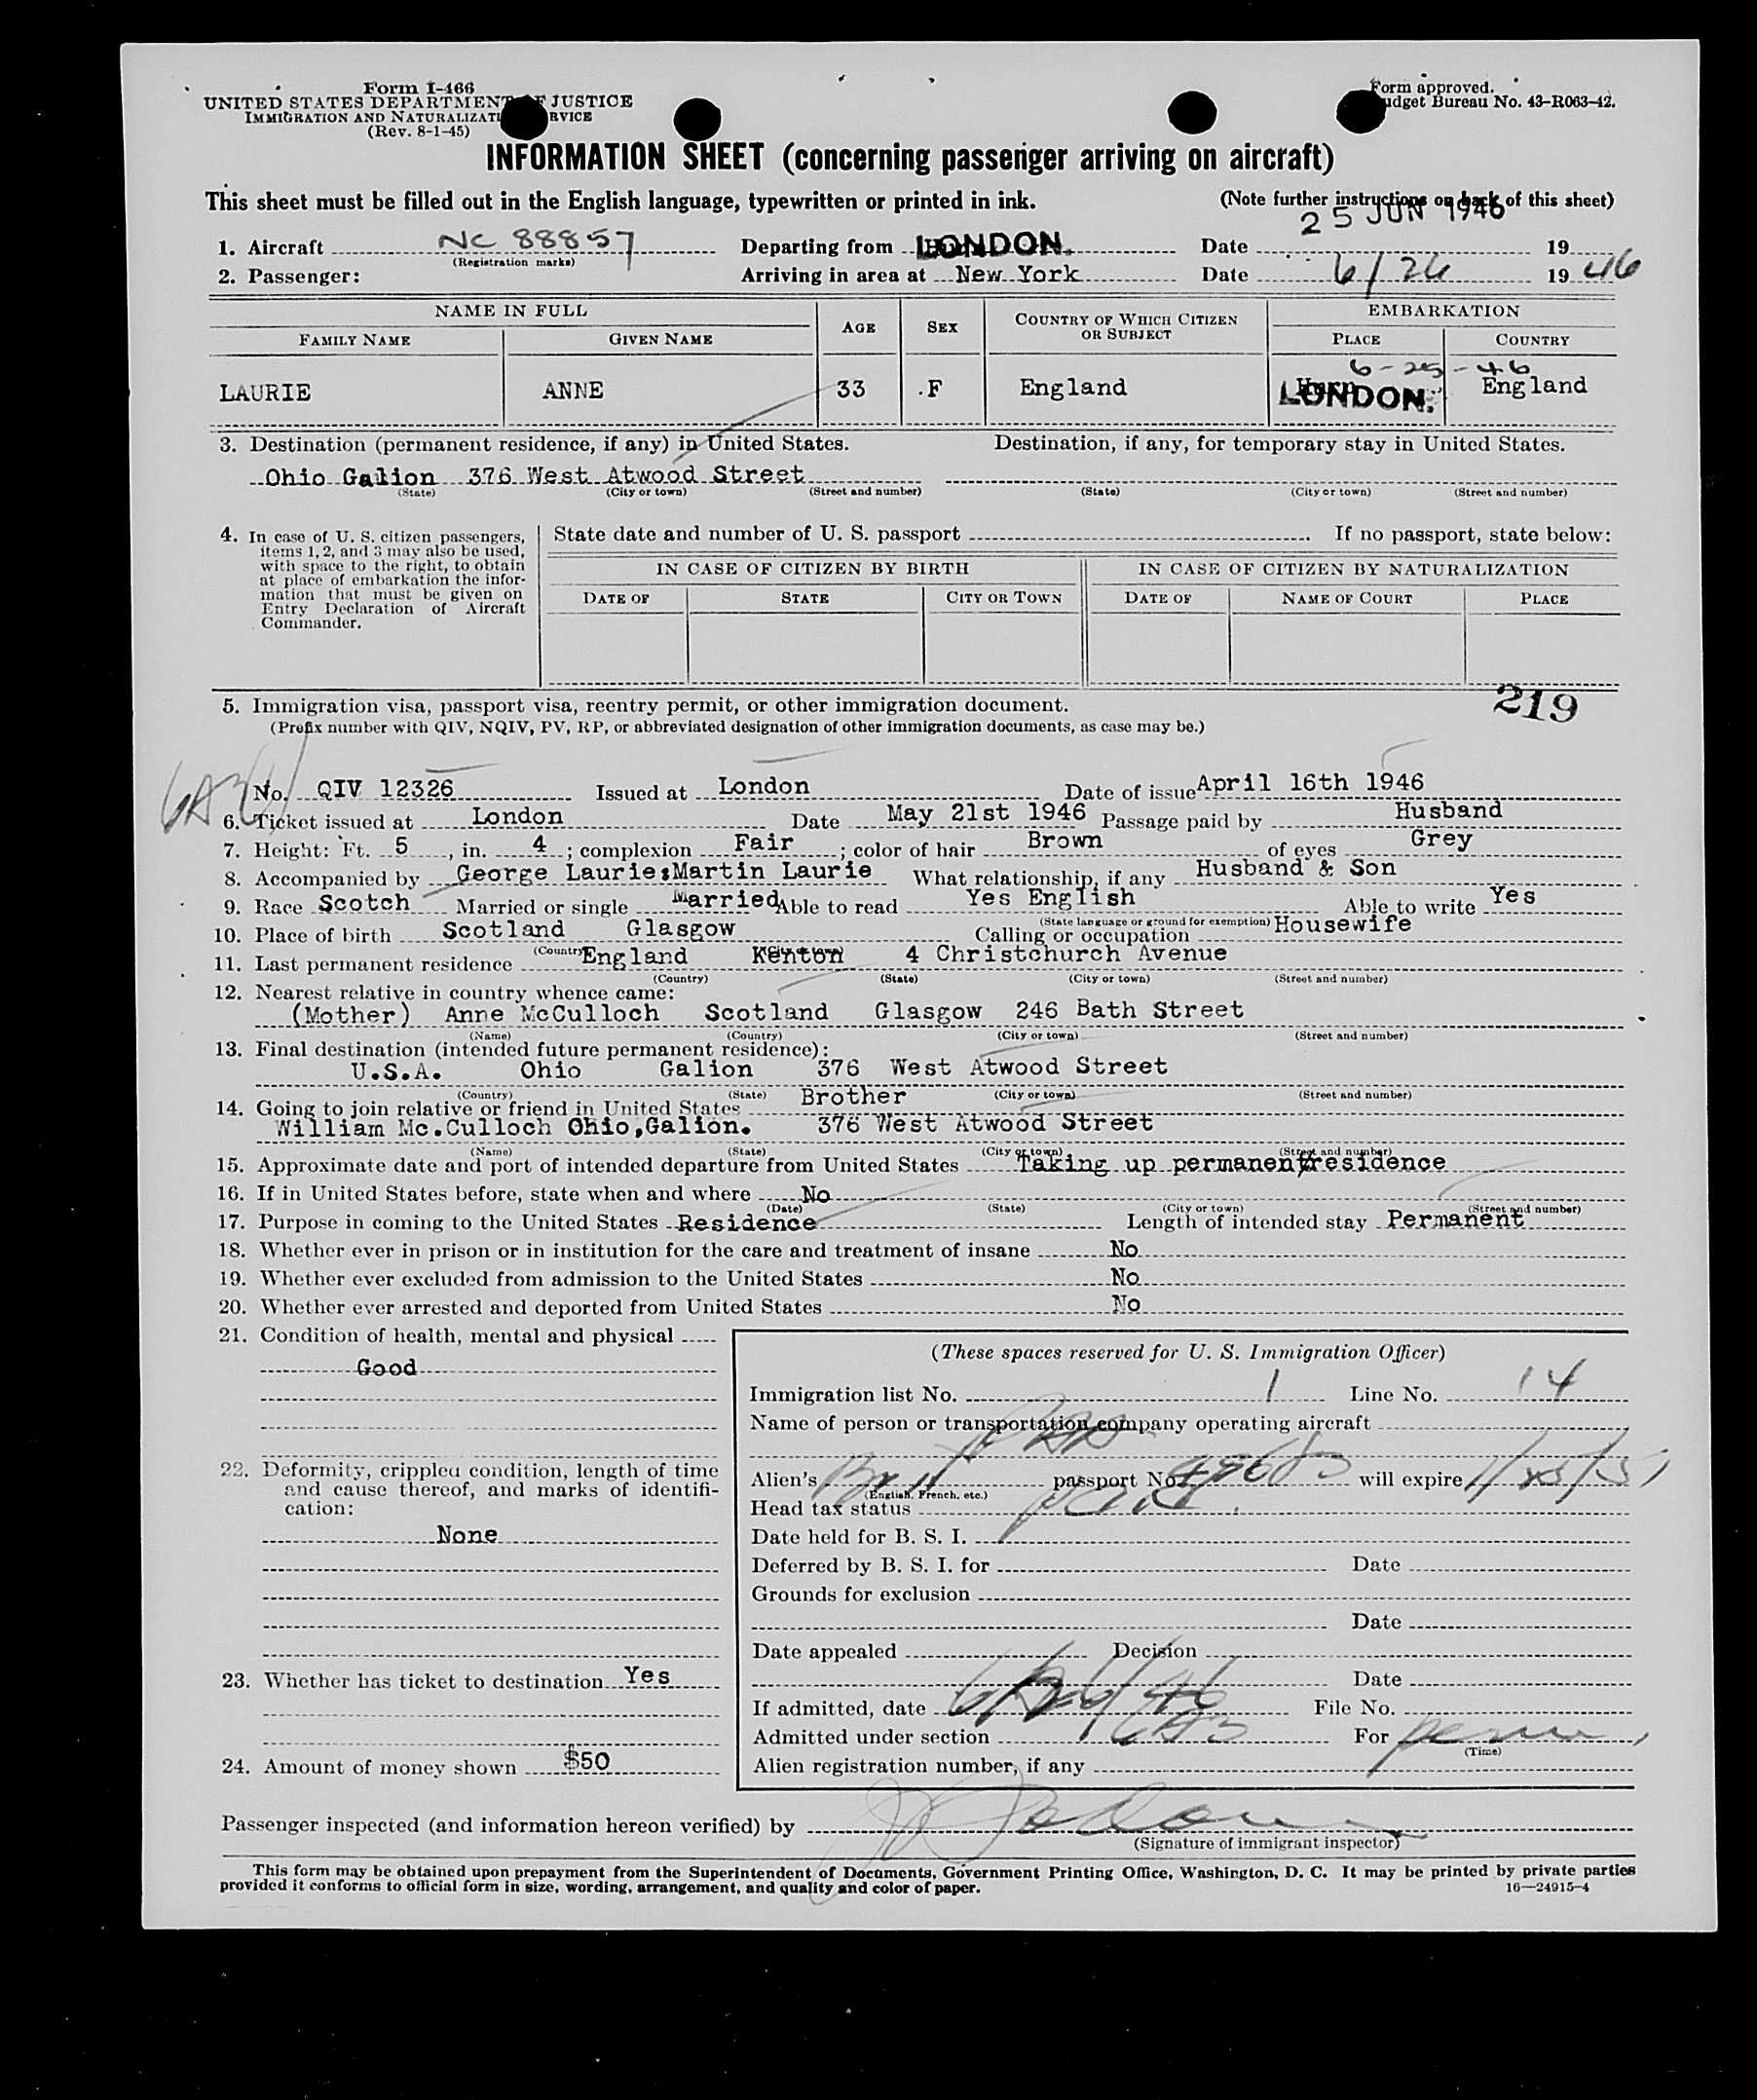 Form I-466
UNITED STATES DEPARTMENT JUSTICE
IMMIGRATION AND NATURALIZATI RVICE
(Rev. 8-1-45)
Form approved.
udget Bureau No. 43-R063-42.
INFORMATION SHEET (concerning passenger arriving on aircraft)
This sheet must be filled out in the English language, typewritten or printed in ink. (Note further instructions on back of this sheet)
25 JUN 1946
1. Aircraft NC 88857 Departing from LONDON. Date 19
(Registration marks)
2. Passenger: Arriving in area at New York Date 6/26 1946
NAME IN FULL AGE SEX COUNTRY OF WHICH CITIZEN OR SUBJECT EMBARKATION
FAMILY NAME GIVEN NAME PLACE COUNTRY
6-25-46
LAURIE ANNE 33 F England LONDON. England
3. Destination (permanent residence, if any) in United States. Destination, if any, for temporary stay in United States.
Ohio Galion 376 West Atwood Street
(State) (City or town) (Street and number) (State) (City or town) (Street and number)
4. In case of U. S. citizen passengers, items 1, 2, and 3 may also be used, with space to the right, to obtain at place of embarkation the information that must be given on Entry Declaration of Aircraft Commander.
State date and number of U. S. passport . If no passport, state below:
IN CASE OF CITIZEN BY BIRTH IN CASE OF CITIZEN BY NATURALIZATION
DATE OF STATE CITY OR TOWN DATE OF NAME OF COURT PLACE
219
5. Immigration visa, passport visa, reentry permit, or other immigration document.
(Prefix number with QIV, NQIV, PV, RP, or abbreviated designation of other immigration documents, as case may be.)
No. QIV 12326 Issued at London Date of issue April 16th 1946
6. Ticket issued at London Date May 21st 1946 Passage paid by Husband
7. Height: Ft. 5, in. 4; complexion Fair; color of hair Brown of eyes Grey
8. Accompanied by George Laurie:Martin Laurie What relationship, if any Husband & Son
9. Race Scotch Married or single Married Able to read Yes English Able to write Yes
(State language or ground for exemption)
10. Place of birth Scotland Glasgow Calling or occupation Housewife
(Country) (City or town)
11. Last permanent residence England Kenton 4 Christchurch Avenue
(Country) (State) (City or town) (Street and number)
12. Nearest relative in country whence came:
(Mother) Anne McCulloch Scotland Glasgow 246 Bath Street
(Name) (Country) (City or town) (Street and number)
13. Final destination (intended future permanent residence):
U.S.A. Ohio Galion 376 West Atwood Street
(Country) (State) (City or town) (Street and number)
14. Going to join relative or friend in United States Brother
William Mc.Culloch Ohio,Galion. 376 West Atwood Street
(Name) (State) (City or town) (Street and number)
15. Approximate date and port of intended departure from United States Taking up permanent residence
16. If in United States before, state when and where No
(Date) (State) (City or town) (Street and number)
17. Purpose in coming to the United States Residence Length of intended stay Permanent
18. Whether ever in prison or in institution for the care and treatment of insane No
19. Whether ever excluded from admission to the United States No
20. Whether ever arrested and deported from United States No
21. Condition of health, mental and physical
Good
22. Deformity, crippled condition, length of time and cause thereof, and marks of identification:
None
23. Whether has ticket to destination Yes
24. Amount of money shown $50
(These spaces reserved for U. S. Immigration Officer)
Immigration list No. 1 Line No. 14
Name of person or transportation company operating aircraft
Alien's Brit passport No. will expire
(English, French, etc.)
Head tax status paid
Date held for B. S. I.
Deferred by B. S. I. for Date
Grounds for exclusion
Date
Date appealed Decision
Date
If admitted, date 6/26/46 File No.
Admitted under section 6A3 For perm
(Time)
Alien registration number, if any
Passenger inspected (and information hereon verified) by
(Signature of immigrant inspector)
This form may be obtained upon prepayment from the Superintendent of Documents, Government Printing Office, Washington, D. C. It may be printed by private parties
provided it conforms to official form in size, wording, arrangement, and quality and color of paper.
16—24915-4